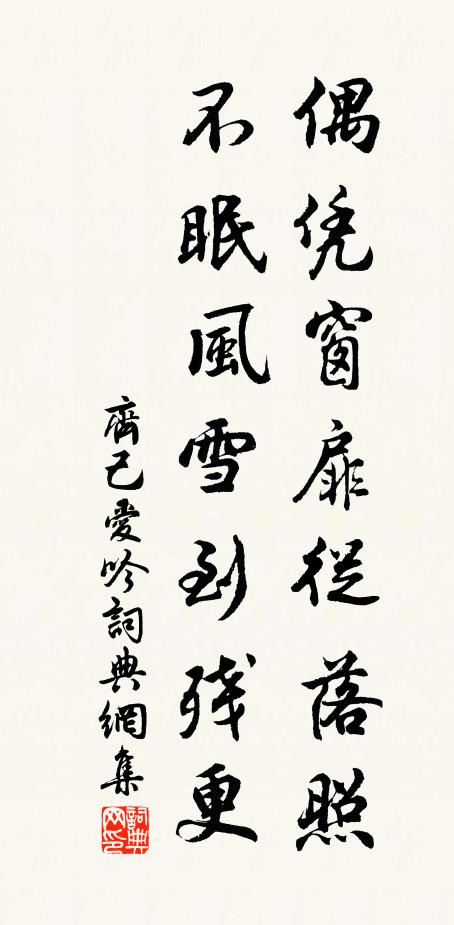 偶凭窗扉從落照
不眠風雪到残更
齊己愛吟詞典網集
詞典網印